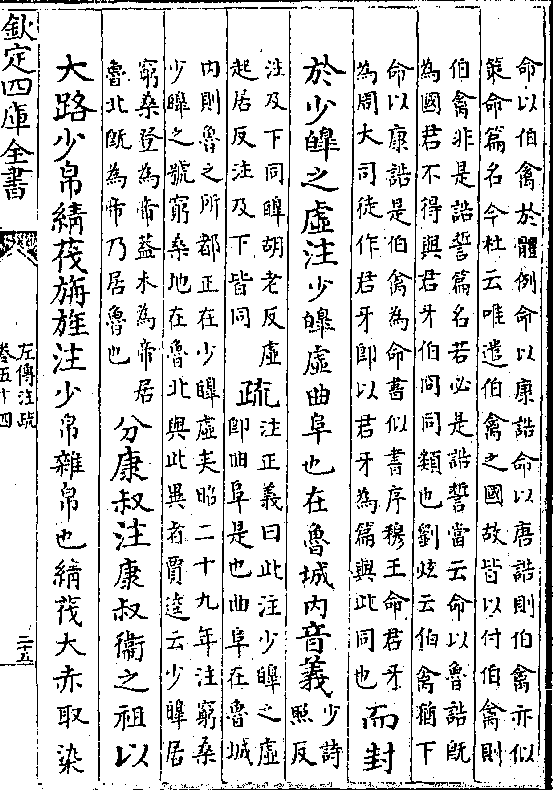 命以伯禽於體例命以康誥命以唐誥則伯禽亦似
策命篇名今杜云唯遣伯禽之國故皆以付伯禽則
伯禽非是誥誓篇名若必是誥誓當云命以魯誥既
為國君不得與君牙伯冏同類也劉炫云伯禽猶下
命以康誥是伯禽為命書似書序穆王命君牙
為周大司徒作君牙即以君牙為篇與此同也
而封
於少皥之虛注少皥虛曲阜也在魯城内音義
少詩
照反
注及下同皥胡老反虛
起居反注及下皆同
疏
注正義曰此注少皥之虛
即曲阜是也曲阜在魯城
内則魯之所都正在少皥虛夫昭二十九年注窮桑
少皥之號窮桑地在魯北與此異者賈逵云少皥居
窮桑登為帝蓋木為帝居
魯北既為帝乃居魯也
分康叔注康叔衞之祖以
大路少帛綪茷旃旌注少帛雜帛也綪茷大赤取染
欽定四庫全書
左傳注疏
卷五十四
二十五